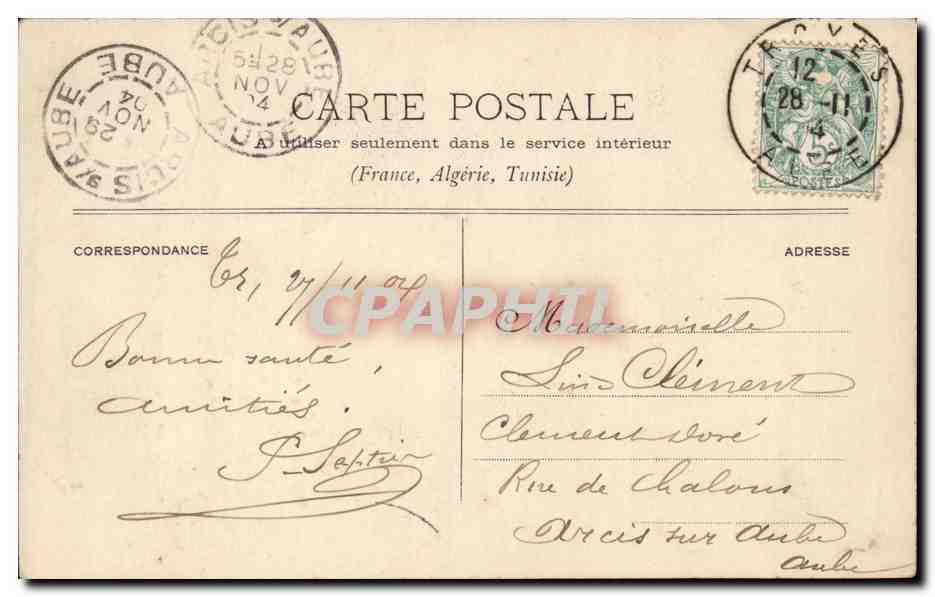 ARCIS S/ AUBE
5E 28
NOV
04
AUBE
ARCIS S/AUBE
29
NOV
04
AUBE
TROYES
12
28 -11
04
AUBE
POSTES
CARTE POSTALE
A utiliser seulement dans le service intérieur
(France, Algérie, Tunisie)
CORRESPONDANCE
ADRESSE
Tr, 27/11 04
Bonne santé,
amitiés.
CPAPHIL
Mademoiselle
Clément
Clement Doré
Rue de Chalons
Arcis sur Aube
Aube